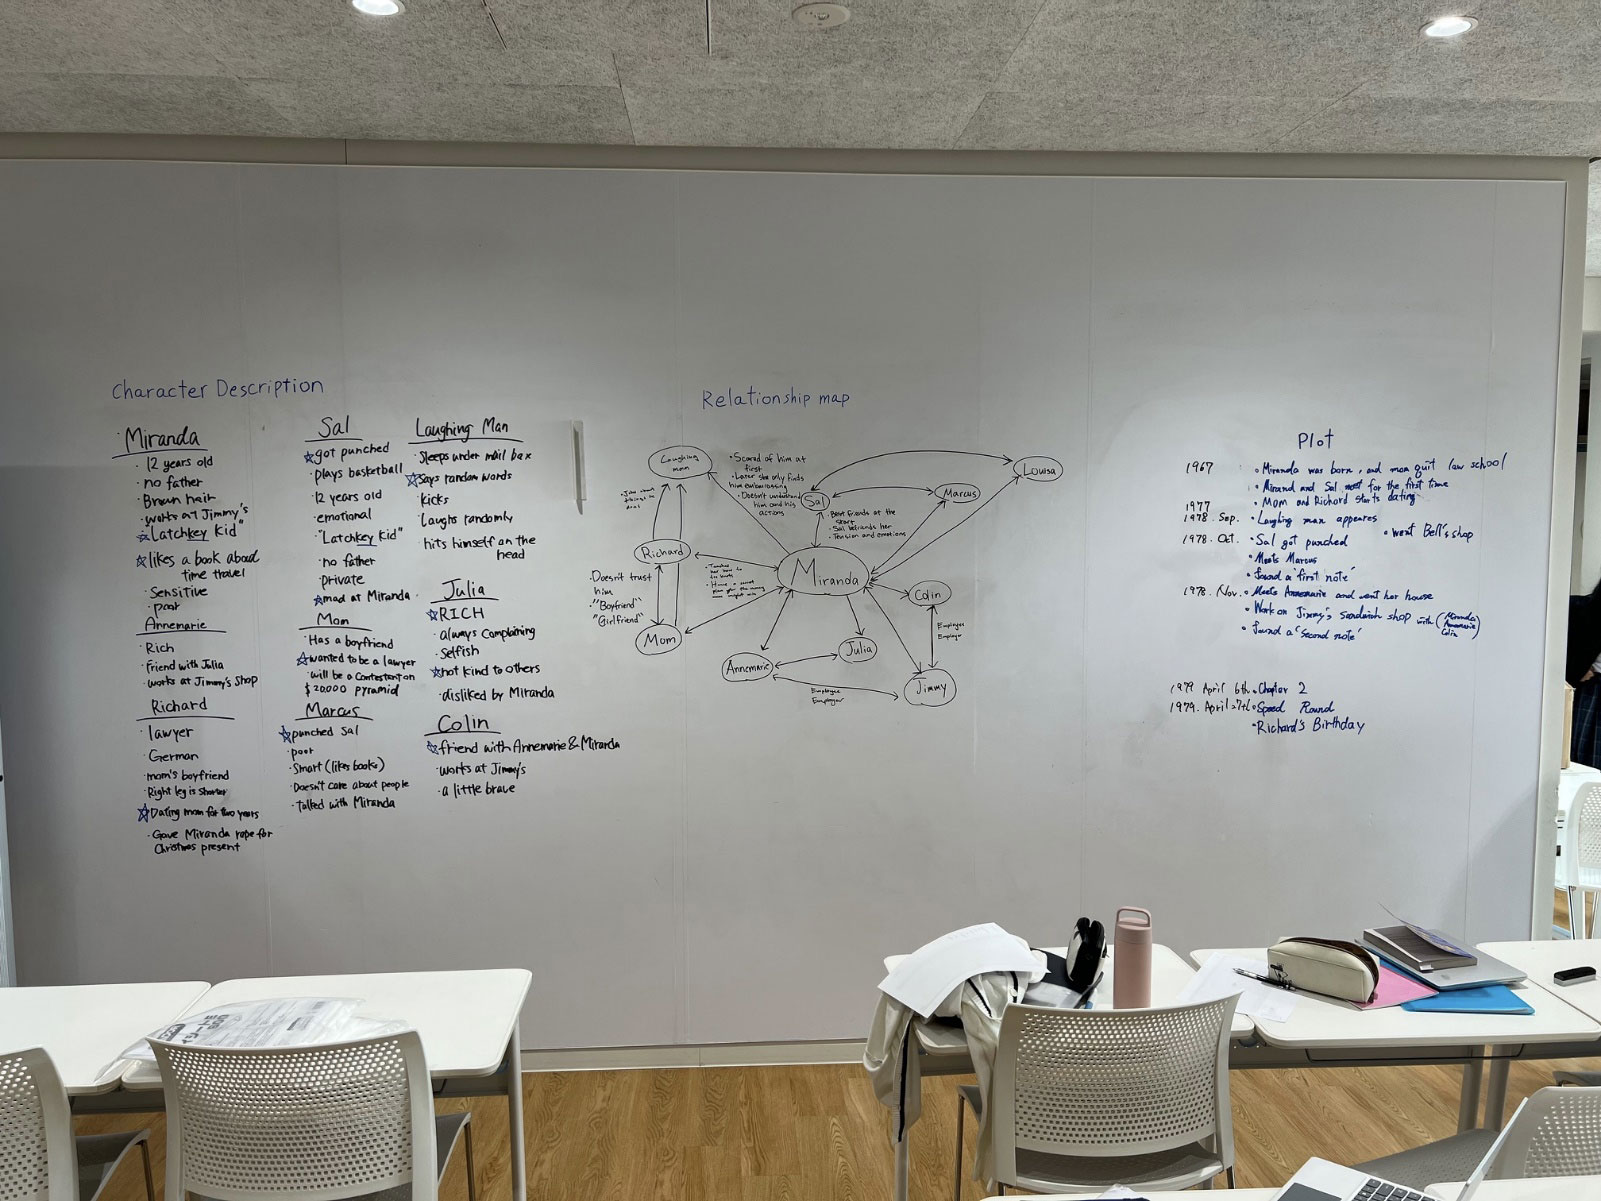 Character Description
Miranda
· 12 years old
· no father
· Brown hair
· works at Jimmy's
☆ "Latchkey kid"
☆ likes a book about
time travel
· Sensitive
· poor
Annemarie
· Rich
· Friend with Julia
· works at Jimmy's shop
Richard
· lawyer
· German
· mom's boyfriend
· Right leg is shorter
☆ Dating mom for two years
· Gave Miranda rope for
Christmas present
Sal
☆ got punched
· plays basketball
· 12 years old
· emotional
· "Latchkey kid"
· no father
· private
☆ mad at Miranda
Mom
· Has a boyfriend
☆ wanted to be a lawyer
· will be a contestant on
$20.000 pyramid
Marcus
☆ punched Sal
· poor
· Smart (likes books)
· Doesn't care about people
· Talked with Miranda
Laughing Man
· Sleeps under mail box
☆ Says random words
· kicks
· Laughs randomly
· hits himself on the
head
Julia
☆ RICH
· always complaining
· Selfish
☆ not kind to others
· disliked by Miranda
Colin
☆ friend with Annemarie & Miranda
· works at Jimmy's
· a little brave
Relationship map
Laughing
man
· Scared of him at
first
· Later she only finds
him embarrassing
· Doesn't understand
him and his
actions
Sal
Marcus
Louisa
· Best friends at the
start
· Sal befriends her
· Tension and emotions
Richard
Miranda
· Doesn't trust
him
· "Boyfriend"
"Girlfriend"
Mom
Colin
Employee
Employer
Annemarie
Julia
Jimmy
Employee
Employer
Plot
1967
· Miranda was born, and mom quit law school
· Mirand and Sal meet for the first time
1977 · Mom and Richard starts dating
1978. Sep. · Laughing man appeares
1978. Oct. · Sal got punched · went Bell's shop
· Meets Marcus
· found a 'first note'
1978. Nov. · Meets Annemarie and went her house
· Work on Jimmy's Sandwich shop with (Miranda
Annemarie
Colin)
· found a 'second note'
1979 April 6th · Chapter 2
1979. April 27th · Speed Round
· Richard's Birthday